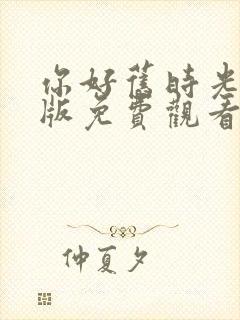 你好舊時光
版免費觀看
仲夏夕